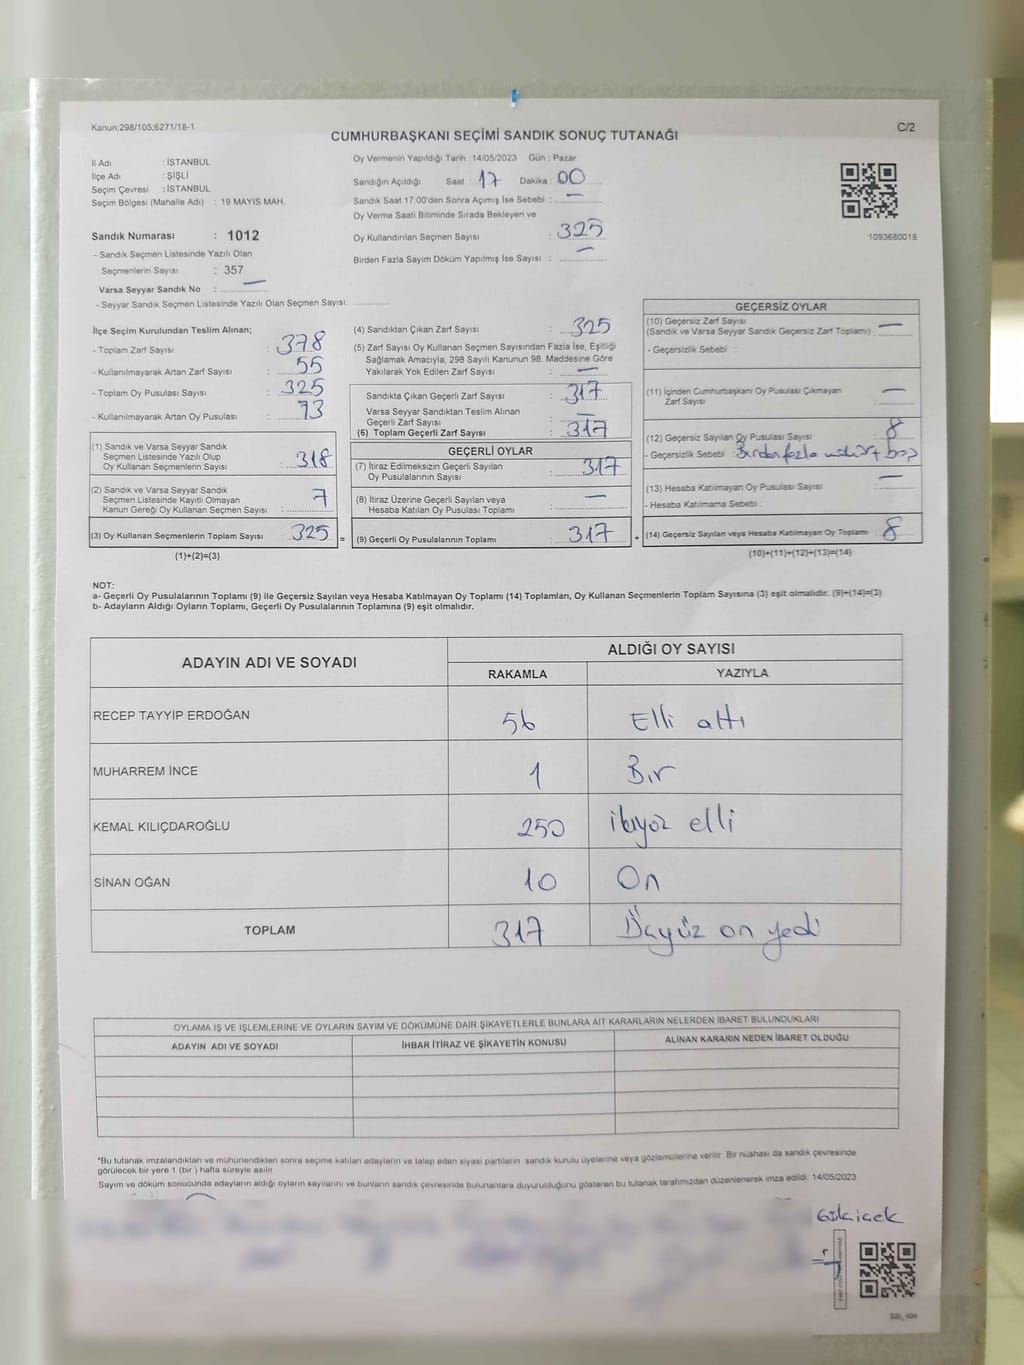 Kanun;298/105;6271/18-1
C/2
CUMHURBAŞKANI SEÇİMİ SANDIK SONUÇ TUTANAĞI
İl Adı : İSTANBUL
İlçe Adı : ŞİŞLİ
Seçim Çevresi : İSTANBUL
Seçim Bölgesi (Mahalle Adı) : 19 MAYIS MAH.
Sandık Numarası : 1012
- Sandık Seçmen Listesinde Yazılı Olan
Seçmenlerin Sayısı : 357
Varsa Seyyar Sandık No : —
- Seyyar Sandık Seçmen Listesinde Yazılı Olan Seçmen Sayısı:
Oy Vermenin Yapıldığı Tarih : 14/05/2023 Gün : Pazar
Sandığın Açıldığı Saat : 17 Dakika : 00
Sandık Saat 17:00'den Sonra Açımış İse Sebebi : —
Oy Verme Saati Bitiminde Sırada Bekleyen ve
Oy Kullandırılan Seçmen Sayısı : 325
Birden Fazla Sayım Döküm Yapılmış İse Sayısı : —
1093680018
İlçe Seçim Kurulundan Teslim Alınan;
- Toplam Zarf Sayısı : 378
- Kullanılmayarak Artan Zarf Sayısı : 55
- Toplam Oy Pusulası Sayısı : 325
- Kullanılmayarak Artan Oy Pusulası : 73
(1) Sandık ve Varsa Seyyar Sandık
Seçmen Listesinde Yazılı Olup
Oy Kullanan Seçmenlerin Sayısı : 318
(2) Sandık ve Varsa Seyyar Sandık
Seçmen Listesinde Kayıtlı Olmayan
Kanun Gereği Oy Kullanan Seçmen Sayısı : 7
(3) Oy Kullanan Seçmenlerin Toplam Sayısı : 325 =
(1)+(2)=(3)
(4) Sandıktan Çıkan Zarf Sayısı : 325
(5) Zarf Sayısı Oy Kullanan Seçmen Sayısından Fazla İse, Eşitliği
Sağlamak Amacıyla, 298 Sayılı Kanunun 98. Maddesine Göre
Yakılarak Yok Edilen Zarf Sayısı : —
Sandıkta Çıkan Geçerli Zarf Sayısı : 317
Varsa Seyyar Sandıktan Teslim Alınan
Geçerli Zarf Sayısı : —
(6) Toplam Geçerli Zarf Sayısı : 317
GEÇERLİ OYLAR
(7) İtiraz Edilmeksizin Geçerli Sayılan
Oy Pusulalarının Sayısı : 317
(8) İtiraz Üzerine Geçerli Sayılan veya
Hesaba Katılan Oy Pusulası Toplamı : —
(9) Geçerli Oy Pusulalarının Toplamı : 317 +
GEÇERSİZ OYLAR
(10) Geçersiz Zarf Sayısı
(Sandık ve Varsa Seyyar Sandık Geçersiz Zarf Toplamı) : —
- Geçersizlik Sebebi :
(11) İçinden Cumhurbaşkanı Oy Pusulası Çıkmayan
Zarf Sayısı : —
(12) Geçersiz Sayılan Oy Pusulası Sayısı : 8
- Geçersizlik Sebebi : Birden fazla mühür + boş
(13) Hesaba Katılmayan Oy Pusulası Sayısı : —
- Hesaba Katılmama Sebebi :
(14) Geçersiz Sayılan veya Hesaba Katılmayan Oy Toplamı : 8
(10)+(11)+(12)+(13)=(14)
NOT:
a- Geçerli Oy Pusulalarının Toplamı (9) ile Geçersiz Sayılan veya Hesaba Katılmayan Oy Toplamı (14) Toplamları, Oy Kullanan Seçmenlerin Toplam Sayısına (3) eşit olmalıdır. (9)+(14)=(3)
b- Adayların Aldığı Oyların Toplamı, Geçerli Oy Pusulalarının Toplamına (9) eşit olmalıdır.
ADAYIN ADI VE SOYADI
ALDIĞI OY SAYISI
RAKAMLA YAZIYLA
RECEP TAYYİP ERDOĞAN 56 Elli altı
MUHARREM İNCE 1 Bir
KEMAL KILIÇDAROĞLU 250 ikiyüz elli
SİNAN OĞAN 10 On
TOPLAM 317 Üçyüz on yedi
OYLAMA İŞ VE İŞLEMLERİNE VE OYLARIN SAYIM VE DÖKÜMÜNE DAİR ŞİKAYETLERLE BUNLARA AİT KARARLARIN NELERDEN İBARET BULUNDUKLARI
ADAYIN ADI VE SOYADI İHBAR İTİRAZ VE ŞİKAYETİN KONUSU ALINAN KARARIN NEDEN İBARET OLDUĞU
*Bu tutanak imzalandıktan ve mühürlendikten sonra seçime katılan adayların ve talep eden siyasi partilerin sandık kurulu üyelerine veya gözlemcilerine verilir. Bir nüshası da sandık çevresinde
görülecek bir yere 1 (bir) hafta süreyle asılır.
Sayım ve döküm sonucunda adayların aldığı oyların sayılarını ve bunların sandık çevresinde bulunanlara duyurulduğunu gösteren bu tutanak tarafımızdan düzenlenerek imza edildi. 14/05/2023